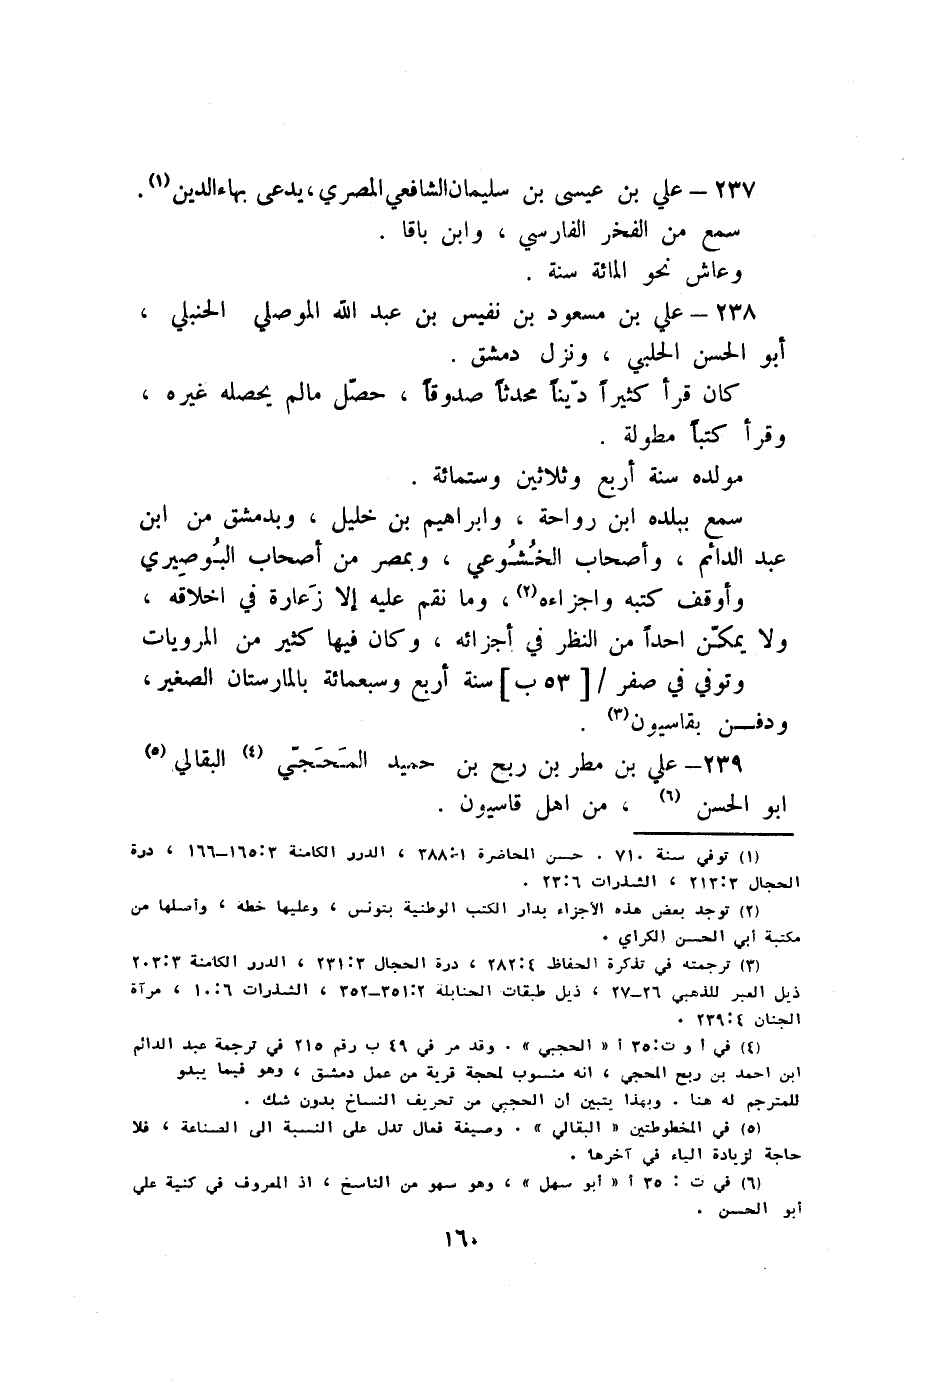 ٢٣٧ – علي بن عيسى بن سليمان الشافعي المصري ، يدعى بهاء الدين (١) .
سمع من الفخر الفارسي ، وابن باقا .
وعاش نحو المائة سنة .
٢٣٨ – علي بن مسعود بن نفيس بن عبد الله الموصلي الحنبلي ،
أبو الحسن الحلبي ، ونزل دمشق .
كان قرأ كثيراً ديّناً محدثاً صدوقاً ، حصّل مالم يحصله غيره ،
وقرأ كتباً مطولة .
مولده سنة أربع وثلاثين وستمائة .
سمع ببلده ابن رواحة ، وابراهيم بن خليل ، وبدمشق من ابن
عبد الدائم ، وأصحاب الخُشُوعي ، وبمصر من أصحاب البُوصِيري
وأوقف كتبه واجزاءه (٢) ، وما نقم عليه إلا زَعارة في اخلاقه ،
ولا يمكّن احداً من النظر في أجزائه ، وكان فيها كثير من المرويات
وتوفي في صفر / [ ٥٣ ب ] سنة أربع وسبعمائة بالمارستان الصغير ،
ودفــن بقاسيون (٣) .
٢٣٩ – علي بن مطر بن ربح بن حميد المَحَجّي (٤) البقالي (٥)
ابو الحسن (٦) ، من اهل قاسيون .
(١) توفي سنة ٧١٠ . حسن المحاضرة ١ : ٣٨٨ ، الدرر الكامنة ٣ : ١٦٥–١٦٦ ، درة
الحجال ٣ : ٢١٣ ، الشذرات ٦ : ٢٣ .
(٢) توجد بعض هذه الأجزاء بدار الكتب الوطنية بتونس ، وعليها خطه ، وأصلها من
مكتبة أبي الحسن الكراي .
(٣) ترجمته في تذكرة الحفاظ ٤ : ٢٨٢ ، درة الحجال ٣ : ٢٣١ ، الدرر الكامنة ٣ : ٢٠٣
ذيل العبر للذهبي ٢٦–٢٧ ، ذيل طبقات الحنابلة ٢ : ٣٥١–٣٥٢ ، الشذرات ٦ : ١٠ ، مرآة
الجنان ٤ : ٢٣٩ .
(٤) في أ و ت : ٣٥ أ « الحجبي » . وقد مر في ٤٩ ب رقم ٢١٥ في ترجمة عبد الدائم
ابن احمد بن ربح المحجي ، انه منسوب لمحجة قرية من عمل دمشق ، وهو فيما يبدو
للمترجم له هنا . وبهذا يتبين أن الحجبي من تحريف النساخ بدون شك .
(٥) في المخطوطتين « البقالي » . وصيغة فعال تدل على النسبة الى الصناعة ، فلا
حاجة لزيادة الياء في آخرها .
(٦) في ت : ٣٥ أ « أبو سهل » ، وهو سهو من الناسخ ، اذ المعروف في كنية علي
أبو الحسن .
١٦٠